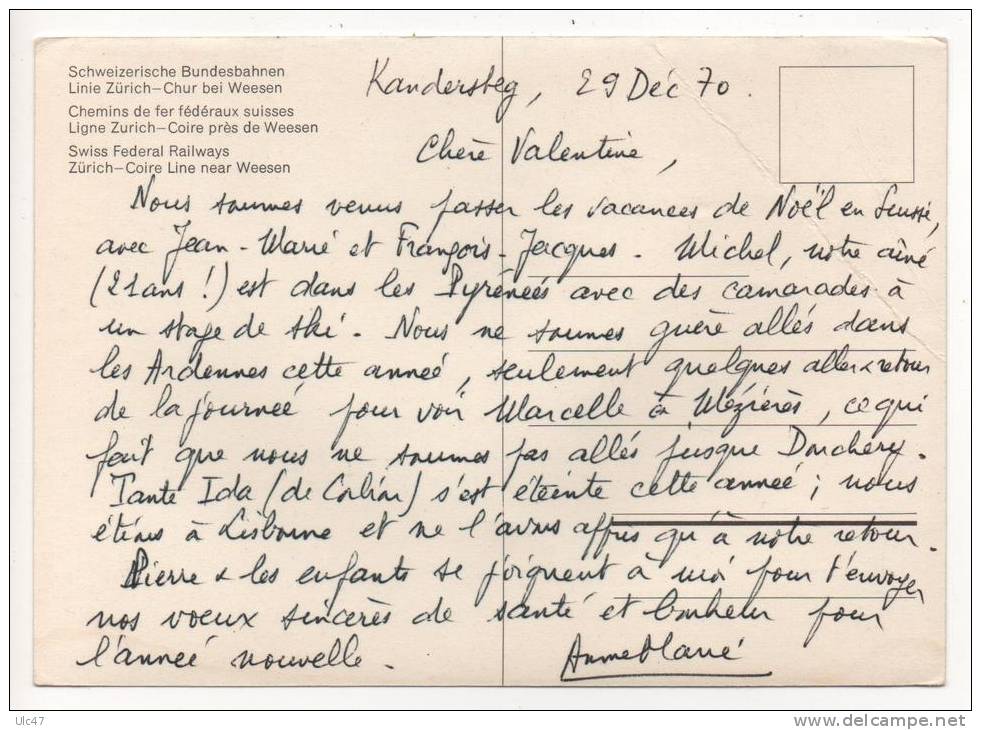 Schweizerische Bundesbahnen
Linie Zürich–Chur bei Weesen
Chemins de fer fédéraux suisses
Ligne Zurich–Coire près de Weesen
Swiss Federal Railways
Zürich–Coire Line near Weesen
Kandersteg, 29 Déc 70.
Chère Valentine,
Nous sommes venus passer les vacances de Noël en Suisse,
avec Jean-Marie et François-Jacques. Michel, notre aîné
(21 ans !) est dans les Pyrénées avec des camarades à
un stage de ski. Nous ne sommes guère allés dans
les Ardennes cette année, seulement quelques aller & retour
de la journée pour voir Marcelle à Mézières, ce qui
fait que nous ne sommes pas allés jusque Donchery.
Tante Ida (de Corbion) s'est éteinte cette année; nous
étions à Lisbonne et ne l'avons appris qu'à notre retour.
Pierre & les enfants se joignent à moi pour t'envoyer
nos voeux sincères de santé et bonheur pour
l'année nouvelle.
AnneMarie
Ulc47
www.delcampe.net